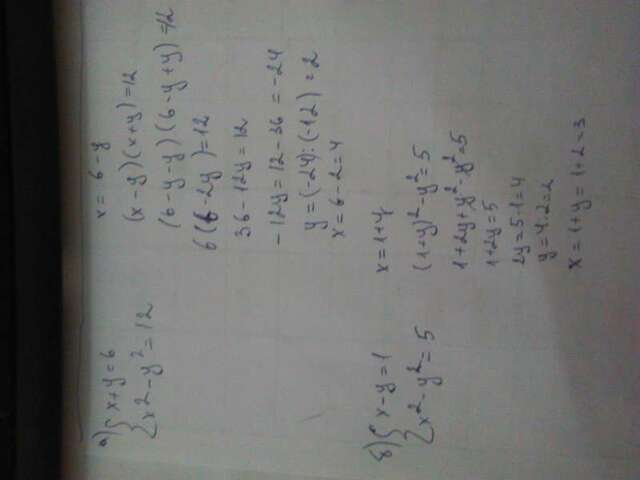 а) { x+y=6
{ x²-y²=12
x=6-y
(x-y)(x+y)=12
(6-y-y)(6-y+y)=12
6(6-2y)=12
36-12y=12
-12y=12-36=-24
y=(-24):(-12)=2
x=6-2=4
б) { x-y=1
{ x²-y²=5
x=1+y
(1+y)²-y²=5
1+2y+y²-y²=5
1+2y=5
2y=5-1=4
y=4:2=2
x=1+y=1+2=3